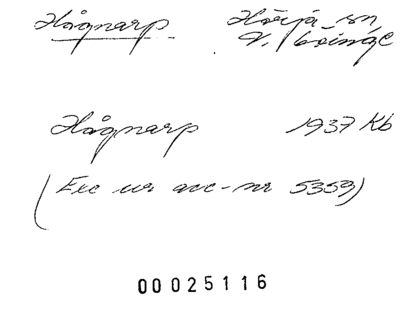 Hågnarp Hörja sn
V. Göinge
Hågnarp 1937 Kb
(Exc ur acc-nr 5359)
00025116